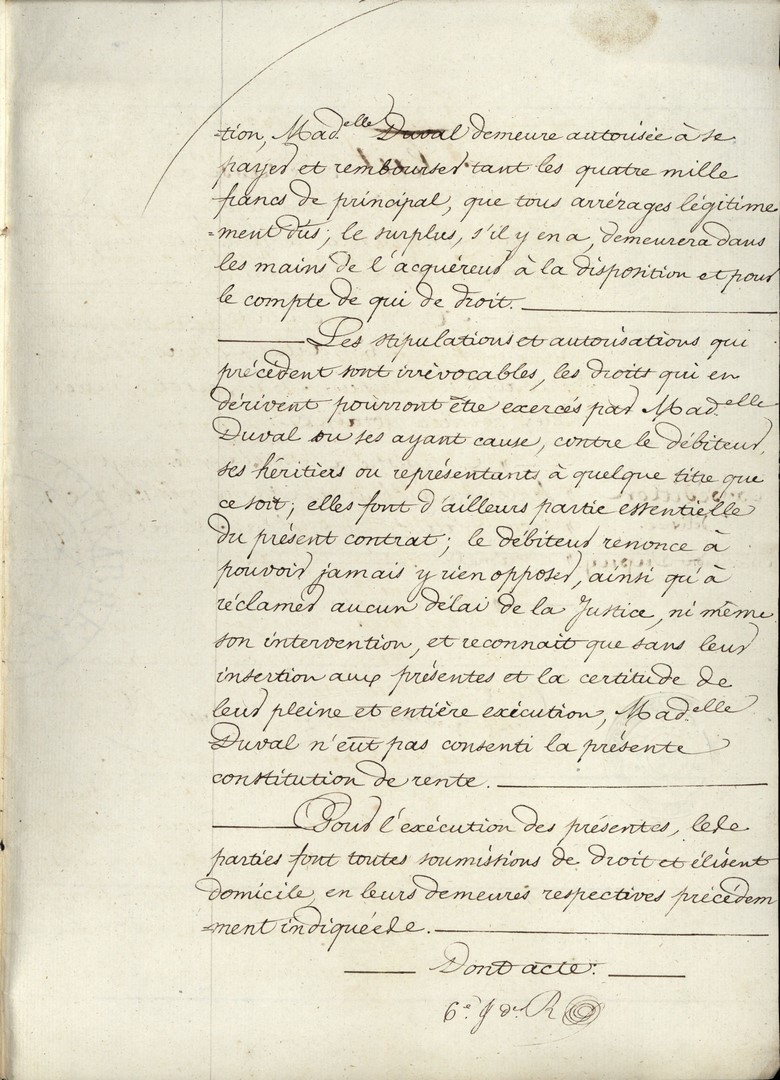 -tion, Mad.elle Duval demeure autorisée à se
payer et rembourser tant les quatre mille
francs de principal, que tous arrérages légitime
=ment dûs; le surplus, s'il y en a, demeurera dans
les mains de l'acquéreur à la disposition et pour
le compte de qui de droit.
Les stipulations et autorisations qui
précédent sont irrévocables, les droits qui en
dérivent pourront être exercés par Mad.elle
Duval ou ses ayant cause, contre le débiteur,
ses héritiers ou représentants à quelque titre que
ce soit; elles font d'ailleurs partie essentielle
du présent contrat; le débiteur renonce à
pouvoir jamais y rien opposer, ainsi qu'à
réclamer aucun délai de la Justice, ni même
son intervention, et reconnait que sans leur
insertion aux présentes et la certitude de
leur pleine et entière exécution, Mad.elle
Duval n'eut pas consenti la présente
constitution de rente.
Pour l'exécution des présentes, les
parties font toutes soumissions de droit et élisent
domicile en leurs demeures respectives précédem
=ment indiquées.
Dont acte:
6.e